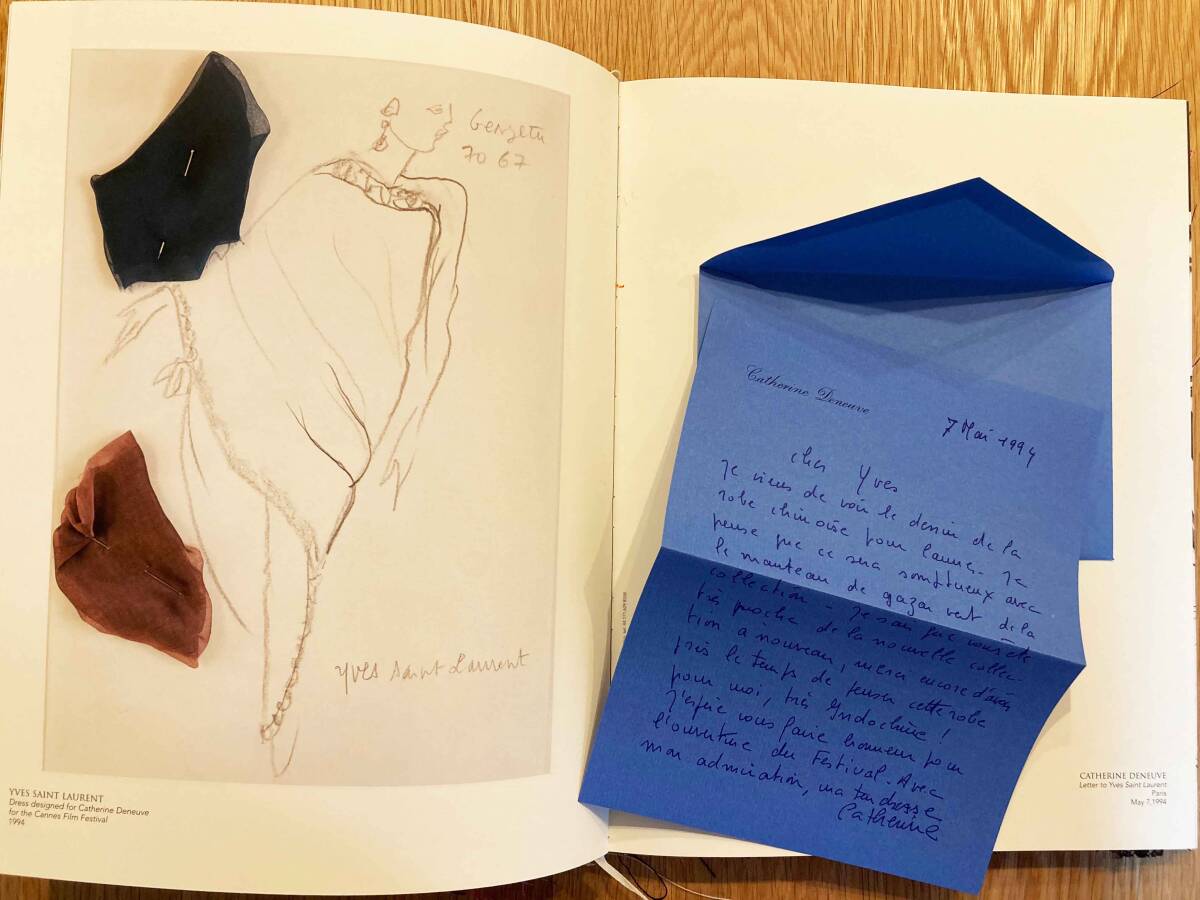 Georgette
70 67
Yves Saint Laurent
YVES SAINT LAURENT
Dress designed for Catherine Deneuve
for the Cannes Film Festival
1994
Catherine Deneuve
7 Mai 1994
cher Yves
Je viens de voir le dessin de la
robe chinoise pour Cannes. Je
pense que ce sera somptueux avec
le manteau de gazar vert de la
collection - Je sais que vous êtes
très proche de la nouvelle collec-
tion à nouveau, merci encore d'avoir
pris le temps de penser cette robe
pour moi, très Indochine !
J'espère vous faire honneur pour
l'ouverture du Festival. Avec
mon admiration, ma tendresse
Catherine
CATHERINE DENEUVE
Letter to Yves Saint Laurent
Paris
May 7, 1994